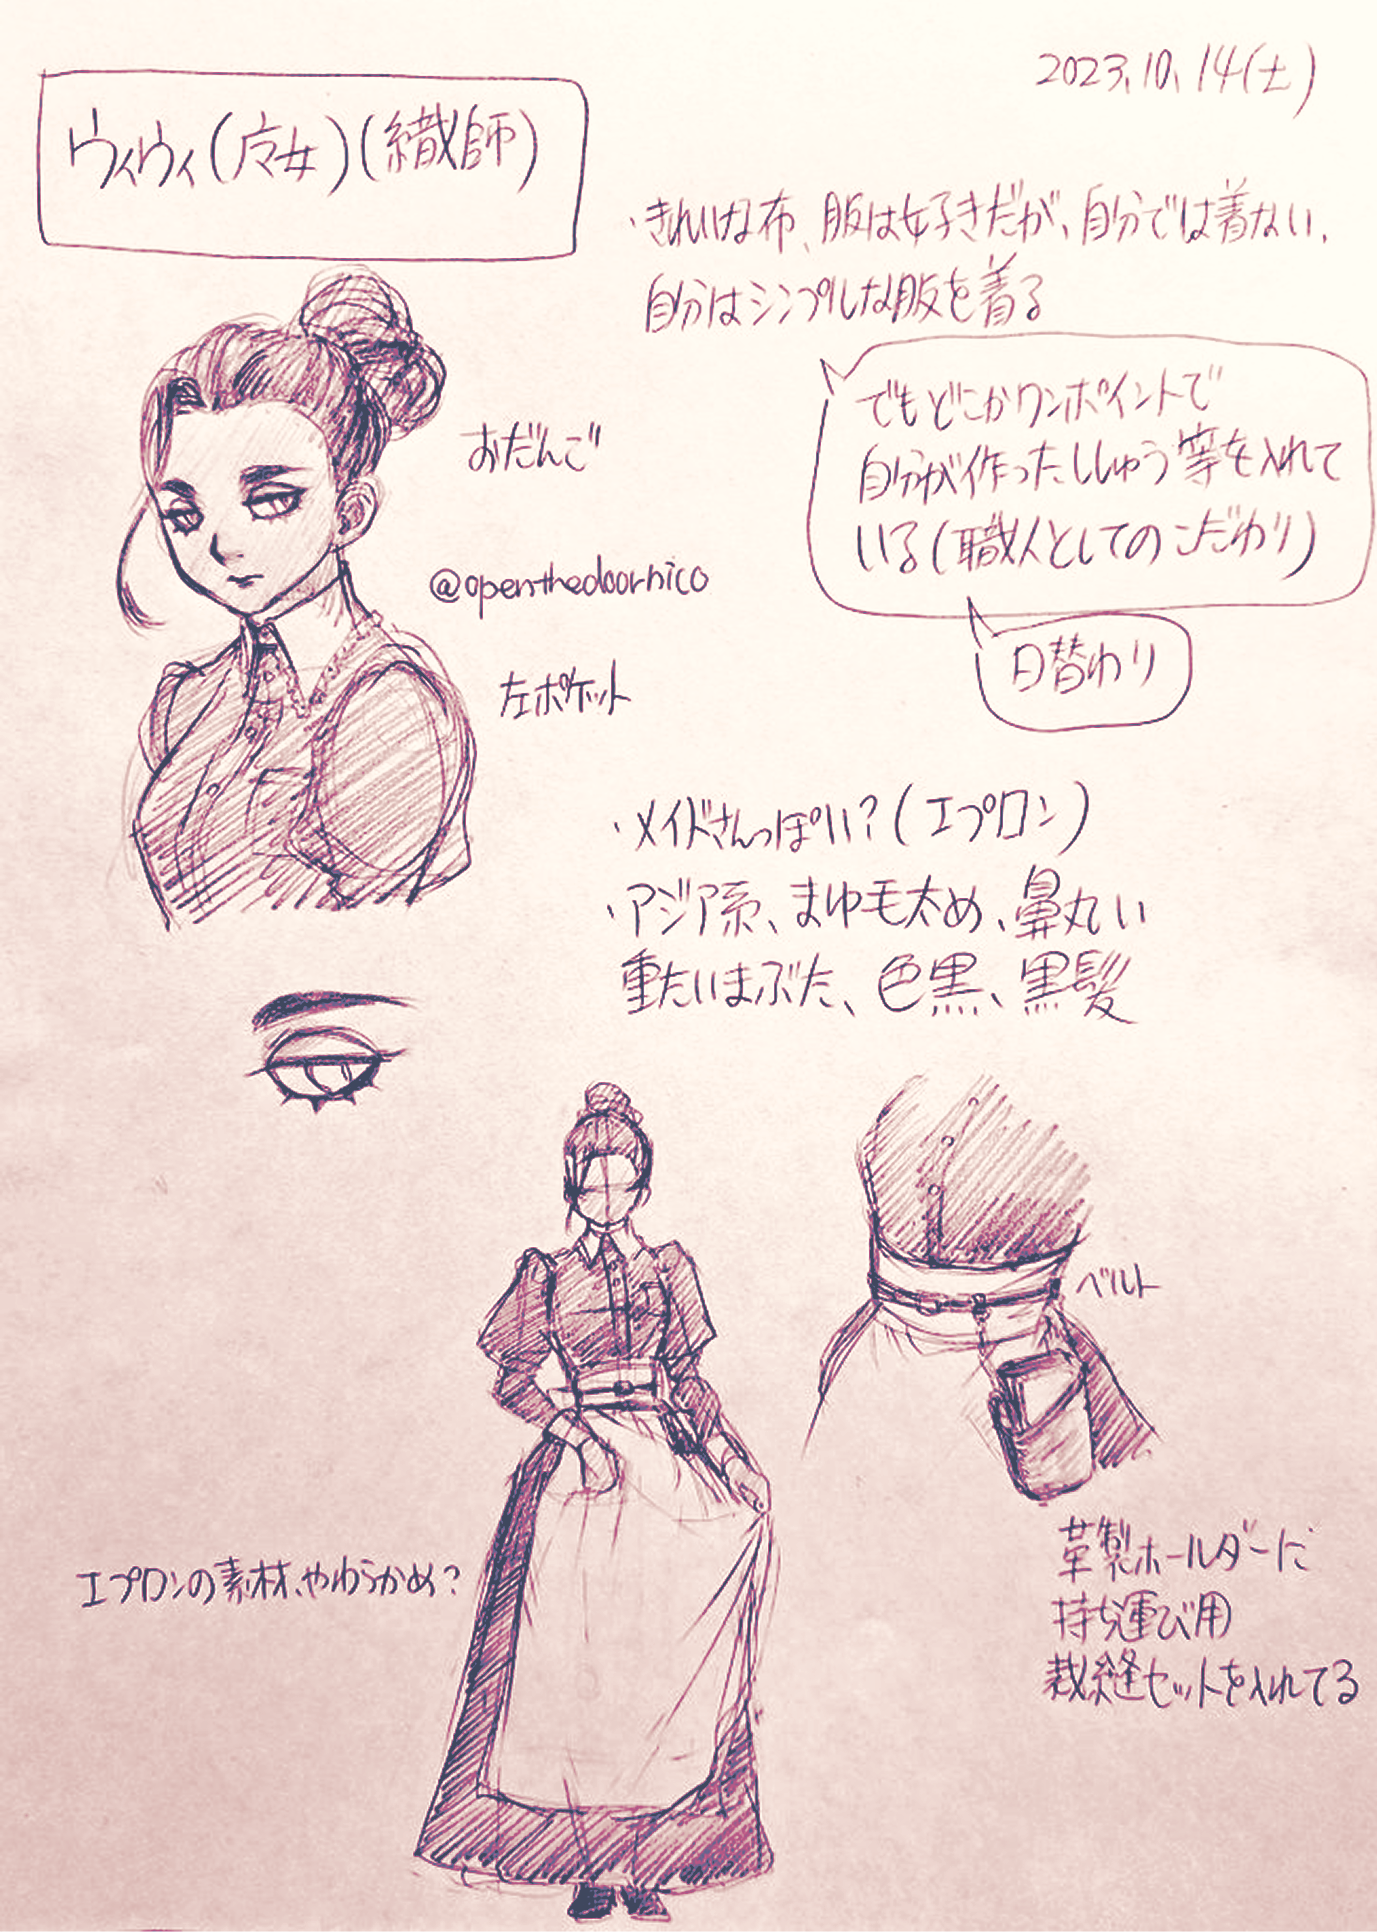 2023.10.14(土)
ウィウィ(魔女)(織師)
・きれいな布、服は好きだが、自分では着ない。
自分はシンプルな服を着る
でもどこかワンポイントで
自分が作ったししゅう等を入れて
いる(職人としてのこだわり)
日替わり
おだんご
@openthedoornico
左ポケット
・メイドさんっぽい?(エプロン)
・アジア系、まゆ毛太め、鼻丸い
重たいまぶた、色黒、黒髪
ベルト
エプロンの素材、やわらかめ?
革製ホールダーに
持ち運び用
裁縫セットを入れてる